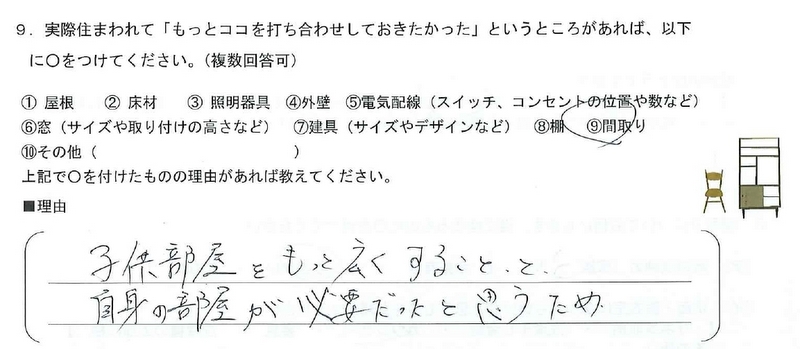 9．実際住まわれて「もっとココを打ち合わせしておきたかった」というところがあれば、以下
に〇をつけてください。（複数回答可）
① 屋根　② 床材　③ 照明器具　④外壁　⑤電気配線（スイッチ、コンセントの位置や数など）
⑥窓（サイズや取り付けの高さなど）　⑦建具（サイズやデザインなど）　⑧棚　⑨間取り
⑩その他（　　　　　　　　　　　　）
上記で〇を付けたものの理由があれば教えてください。
■理由
子供部屋をもっと広くすること、と、
自身の部屋が必要だったと思うため